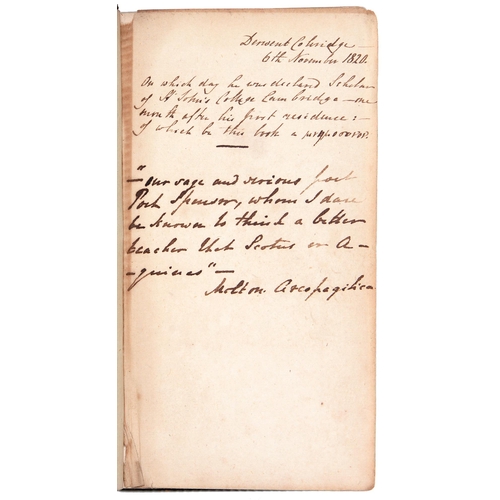 Derwent Coleridge —
6th November 1820.
On which day he was declared Scholar
of St John's College Cambridge — one
month after his first residence: —
of which be this book a μνημοσυνον.
— "our sage and serious poet
Poet Spenser, whom I dare
be known to think a better
teacher that Scotus or A-
-quinas" —
Milton. Areopagitica